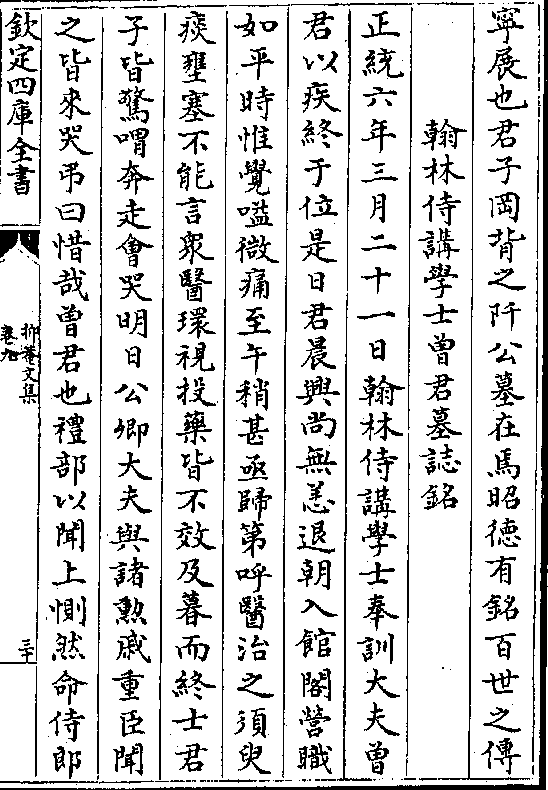 寧展也君子岡背之阡公墓在焉昭德有銘百世之傳
翰林侍講學士曾君墓誌銘
正統六年三月二十一日翰林侍講學士奉訓大夫曾
君以疾終于位是日君晨興尚無恙退朝入館閣營職
如平時惟覺嗌微痛至午稍甚亟歸第呼醫治之須臾
痰壅塞不能言衆醫環視投藥皆不效及暮而終士君
子皆驚喟奔走會哭明日公卿大夫與諸勲戚重臣聞
之皆來哭弔曰惜哉曾君也禮部以聞上惻然命侍郎
欽定四庫全書
抑菴文集
卷九
三十